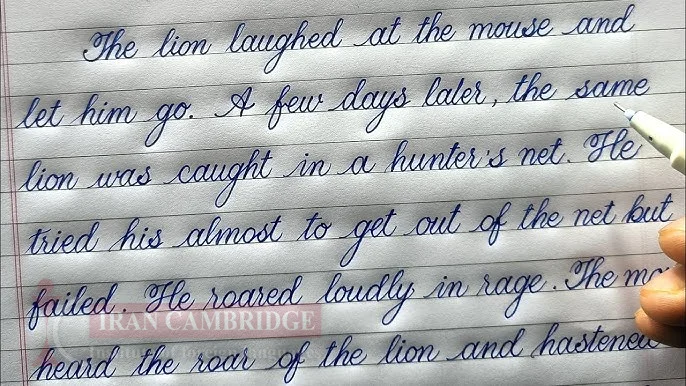 The lion laughed at the mouse and
let him go. A few days later, the same
lion was caught in a hunter's net. He
tried his almost to get out of the net but
failed. He roared loudly in rage. The
IRAN CAMBRIDGE
heard the roar of the lion and hastened